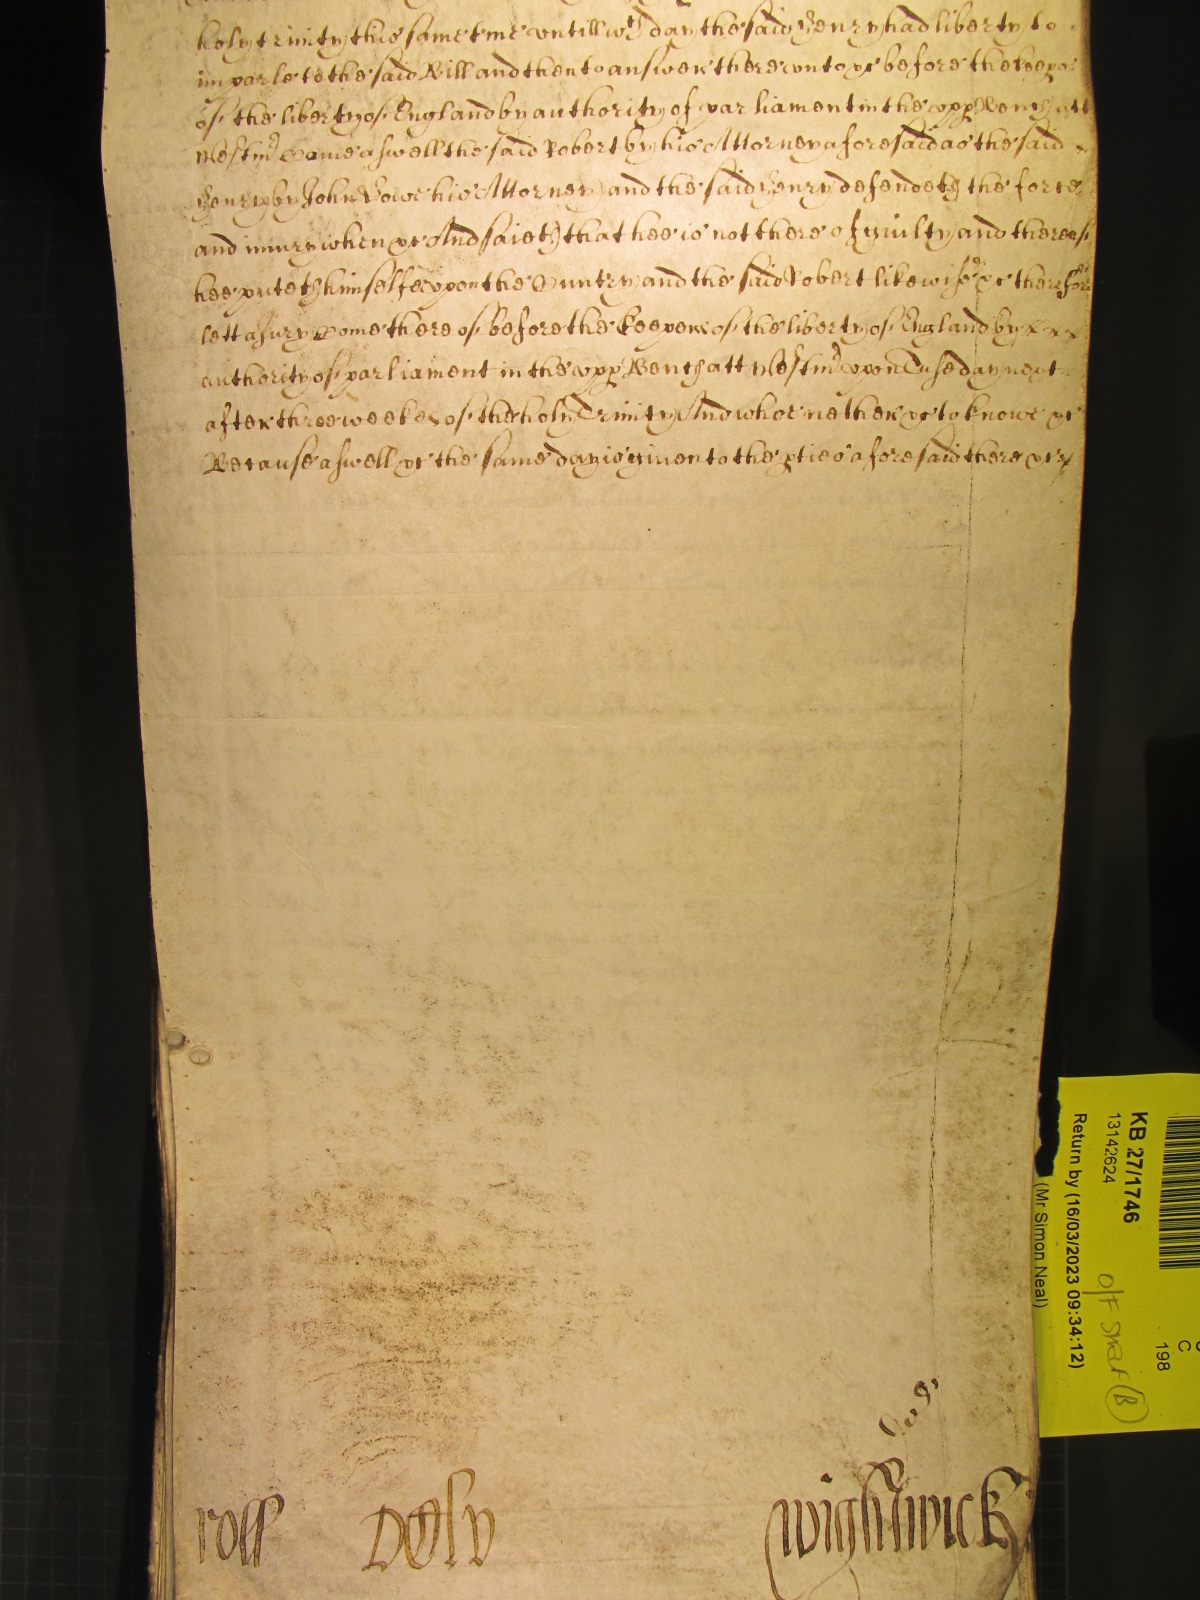 holy trinity this same tme untill wch day the said Henry had liberty to
imparle to the said Bill and then to answer thereunto &c before the keepers
of the liberty of England by authority of parliament in the upp Bench att
Westmr Came aswell the said Robert by his Attorney aforesaid as the said
Henry by John Lowe his Attorney and the said Henry defendeth the force
and iniury when &c And saieth that hee is not thereof guilty and thereof
hee puteth himselfe upon the Cuntry and the said Robert likewise &c therefore
lett a Jury Come thereof before the keepers of the liberty of England by x x x
authority of parliament in the upp Bench att Westmr upon Tuseday next
after three weekes of the holy Trinity And who nether &c to knowe &c
Because aswell &c the same day is given to the pties aforesaid there &c x
roll
Wightwick
KB 27/1746
13142624
Return by (16/03/2023 09:34:12)
(Mr Simon Neal)
C
198
O/F
B